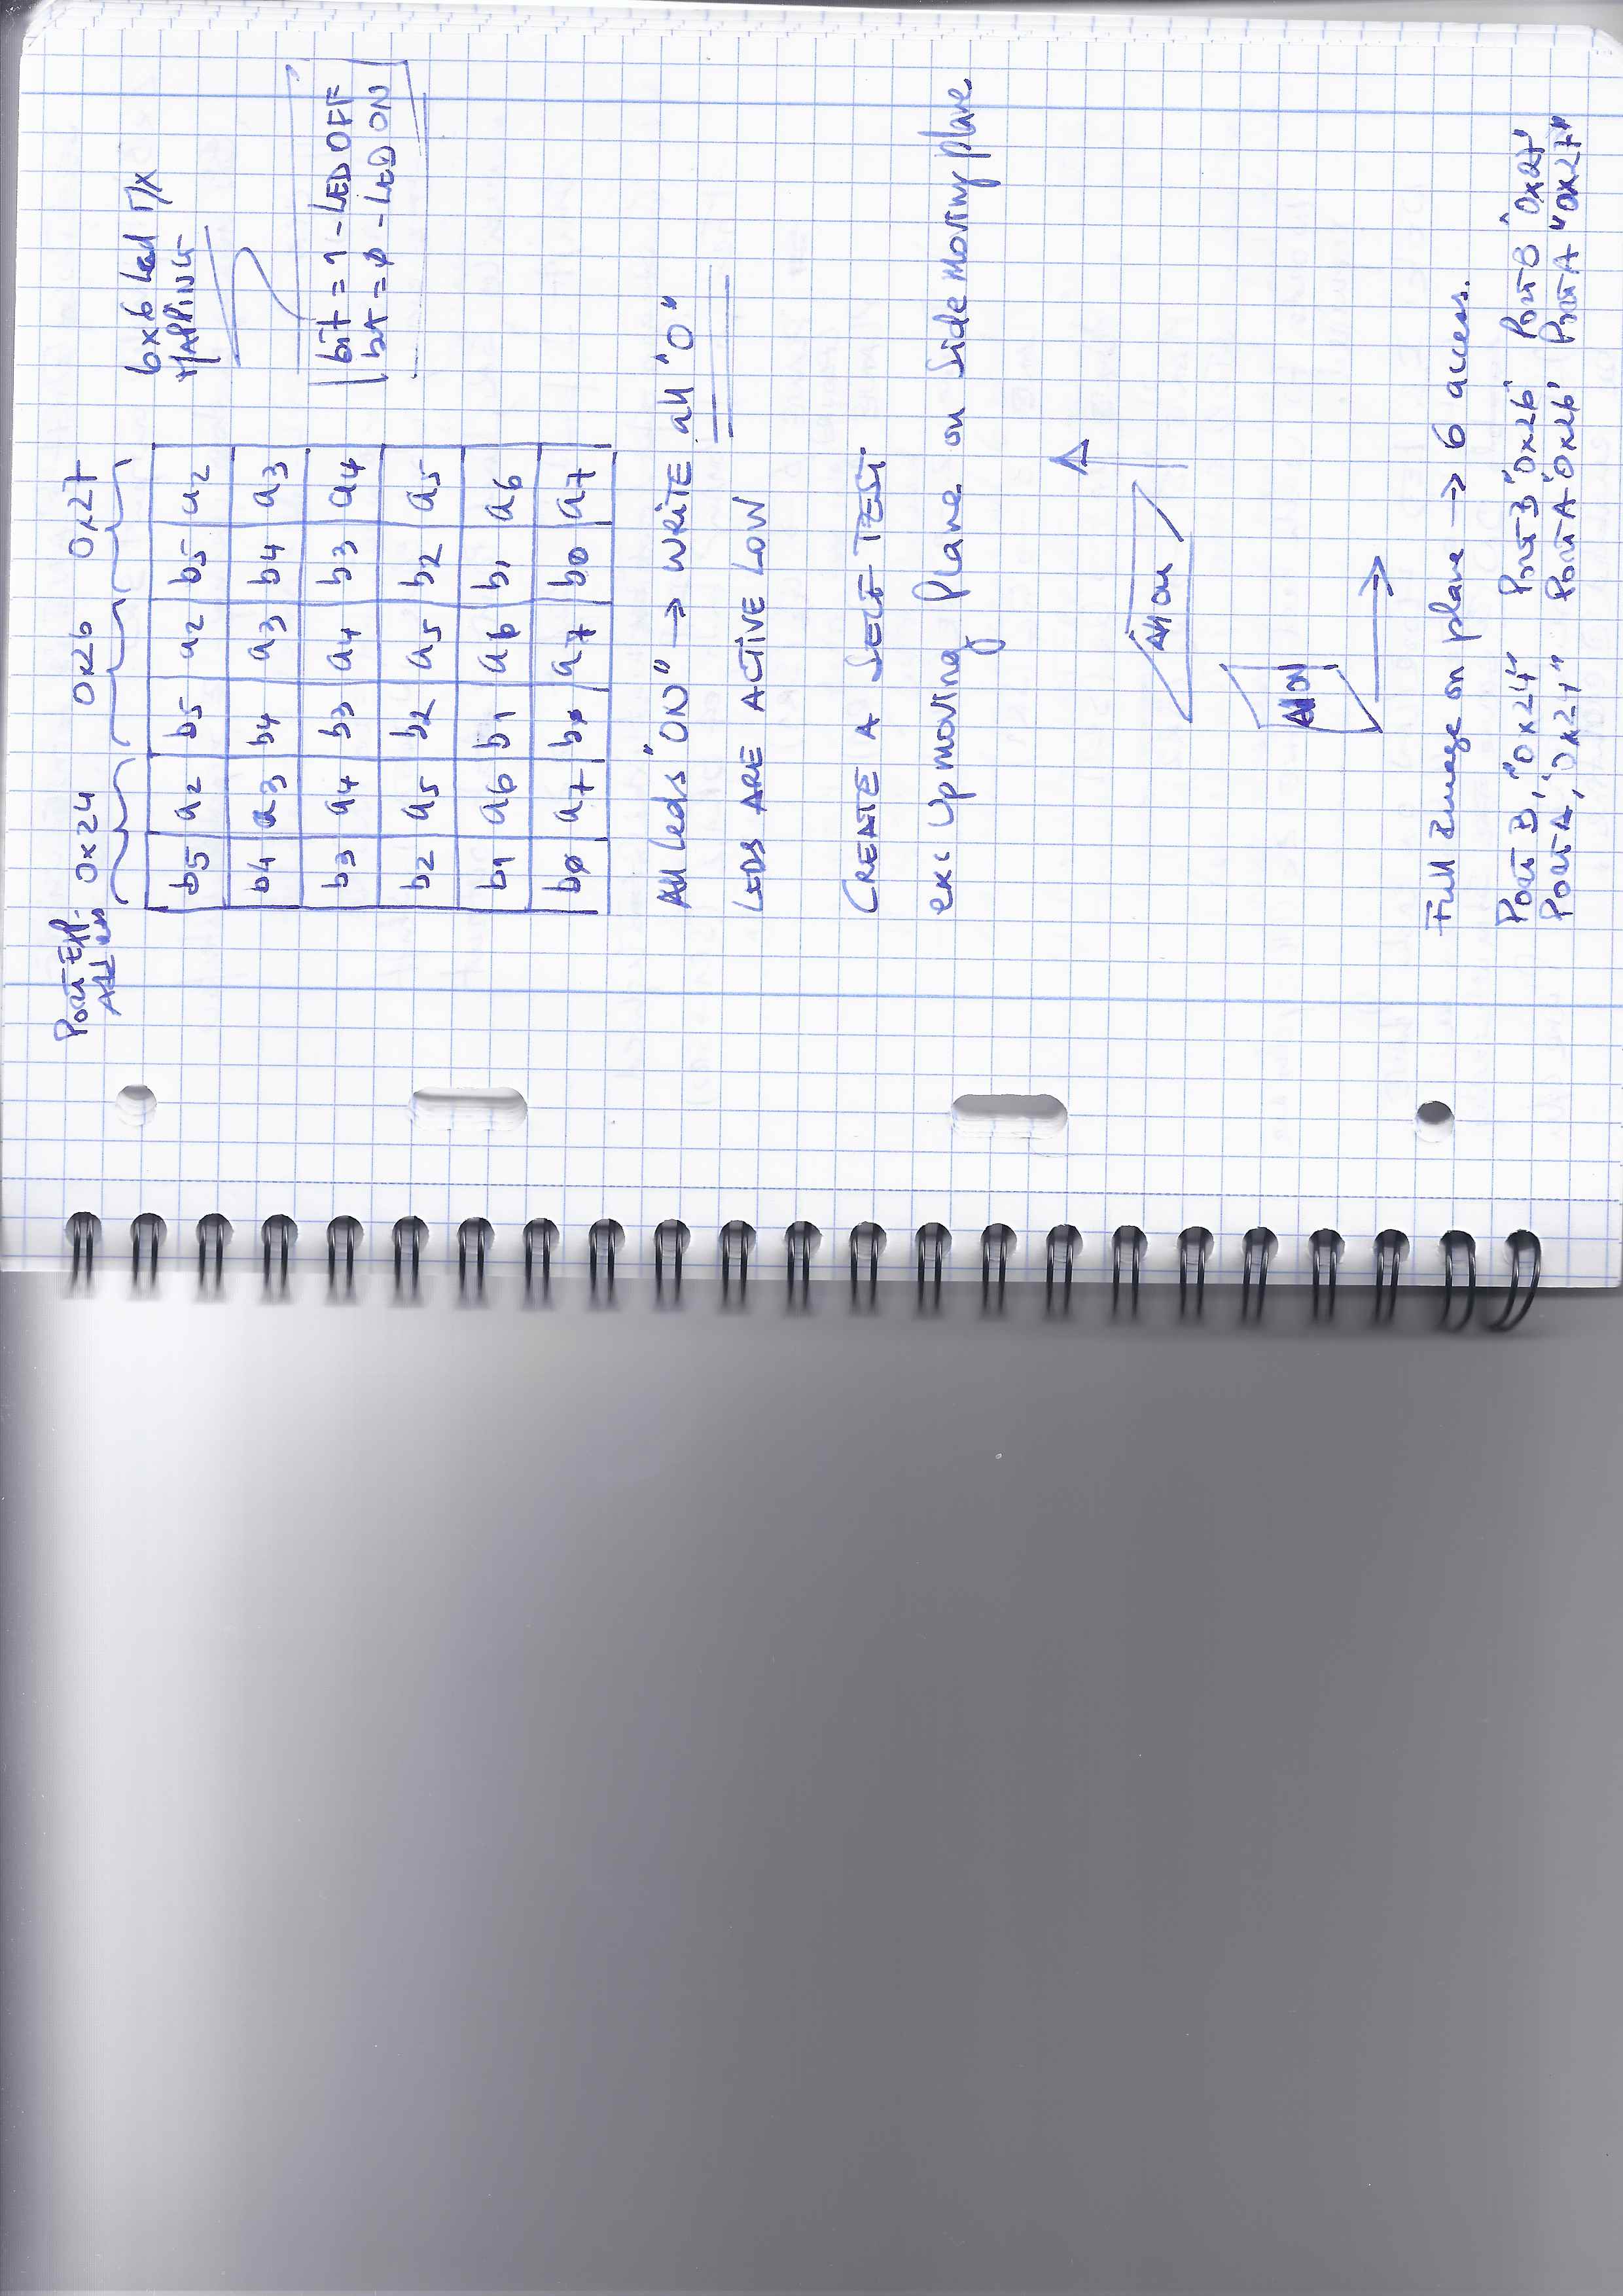 Port Exp. 0x24 0x26 0x27
Address
6x6 Led M/x
MAPPING
b5 a2 b5 a2 b5 a2
b4 a3 b4 a3 b4 a3
b3 a4 b3 a4 b3 a4
b2 a5 b2 a5 b2 a5
b1 a6 b1 a6 b1 a6
bø a7 bø a7 bø a7
bit = 1 - LED OFF
bit = ø - LED ON
All leds "ON" → WRITE all "0"
LEDS ARE ACTIVE LOW
CREATE A SELF TEST:
ex: Up moving Plane on Side moving plane.
All ON
All ON
Full Image on plane → 6 access.
Port B, "0x24" Port B "0x26" Port B "0x27"
Port A, "0x24" Port A "0x26" Port A "0x27"